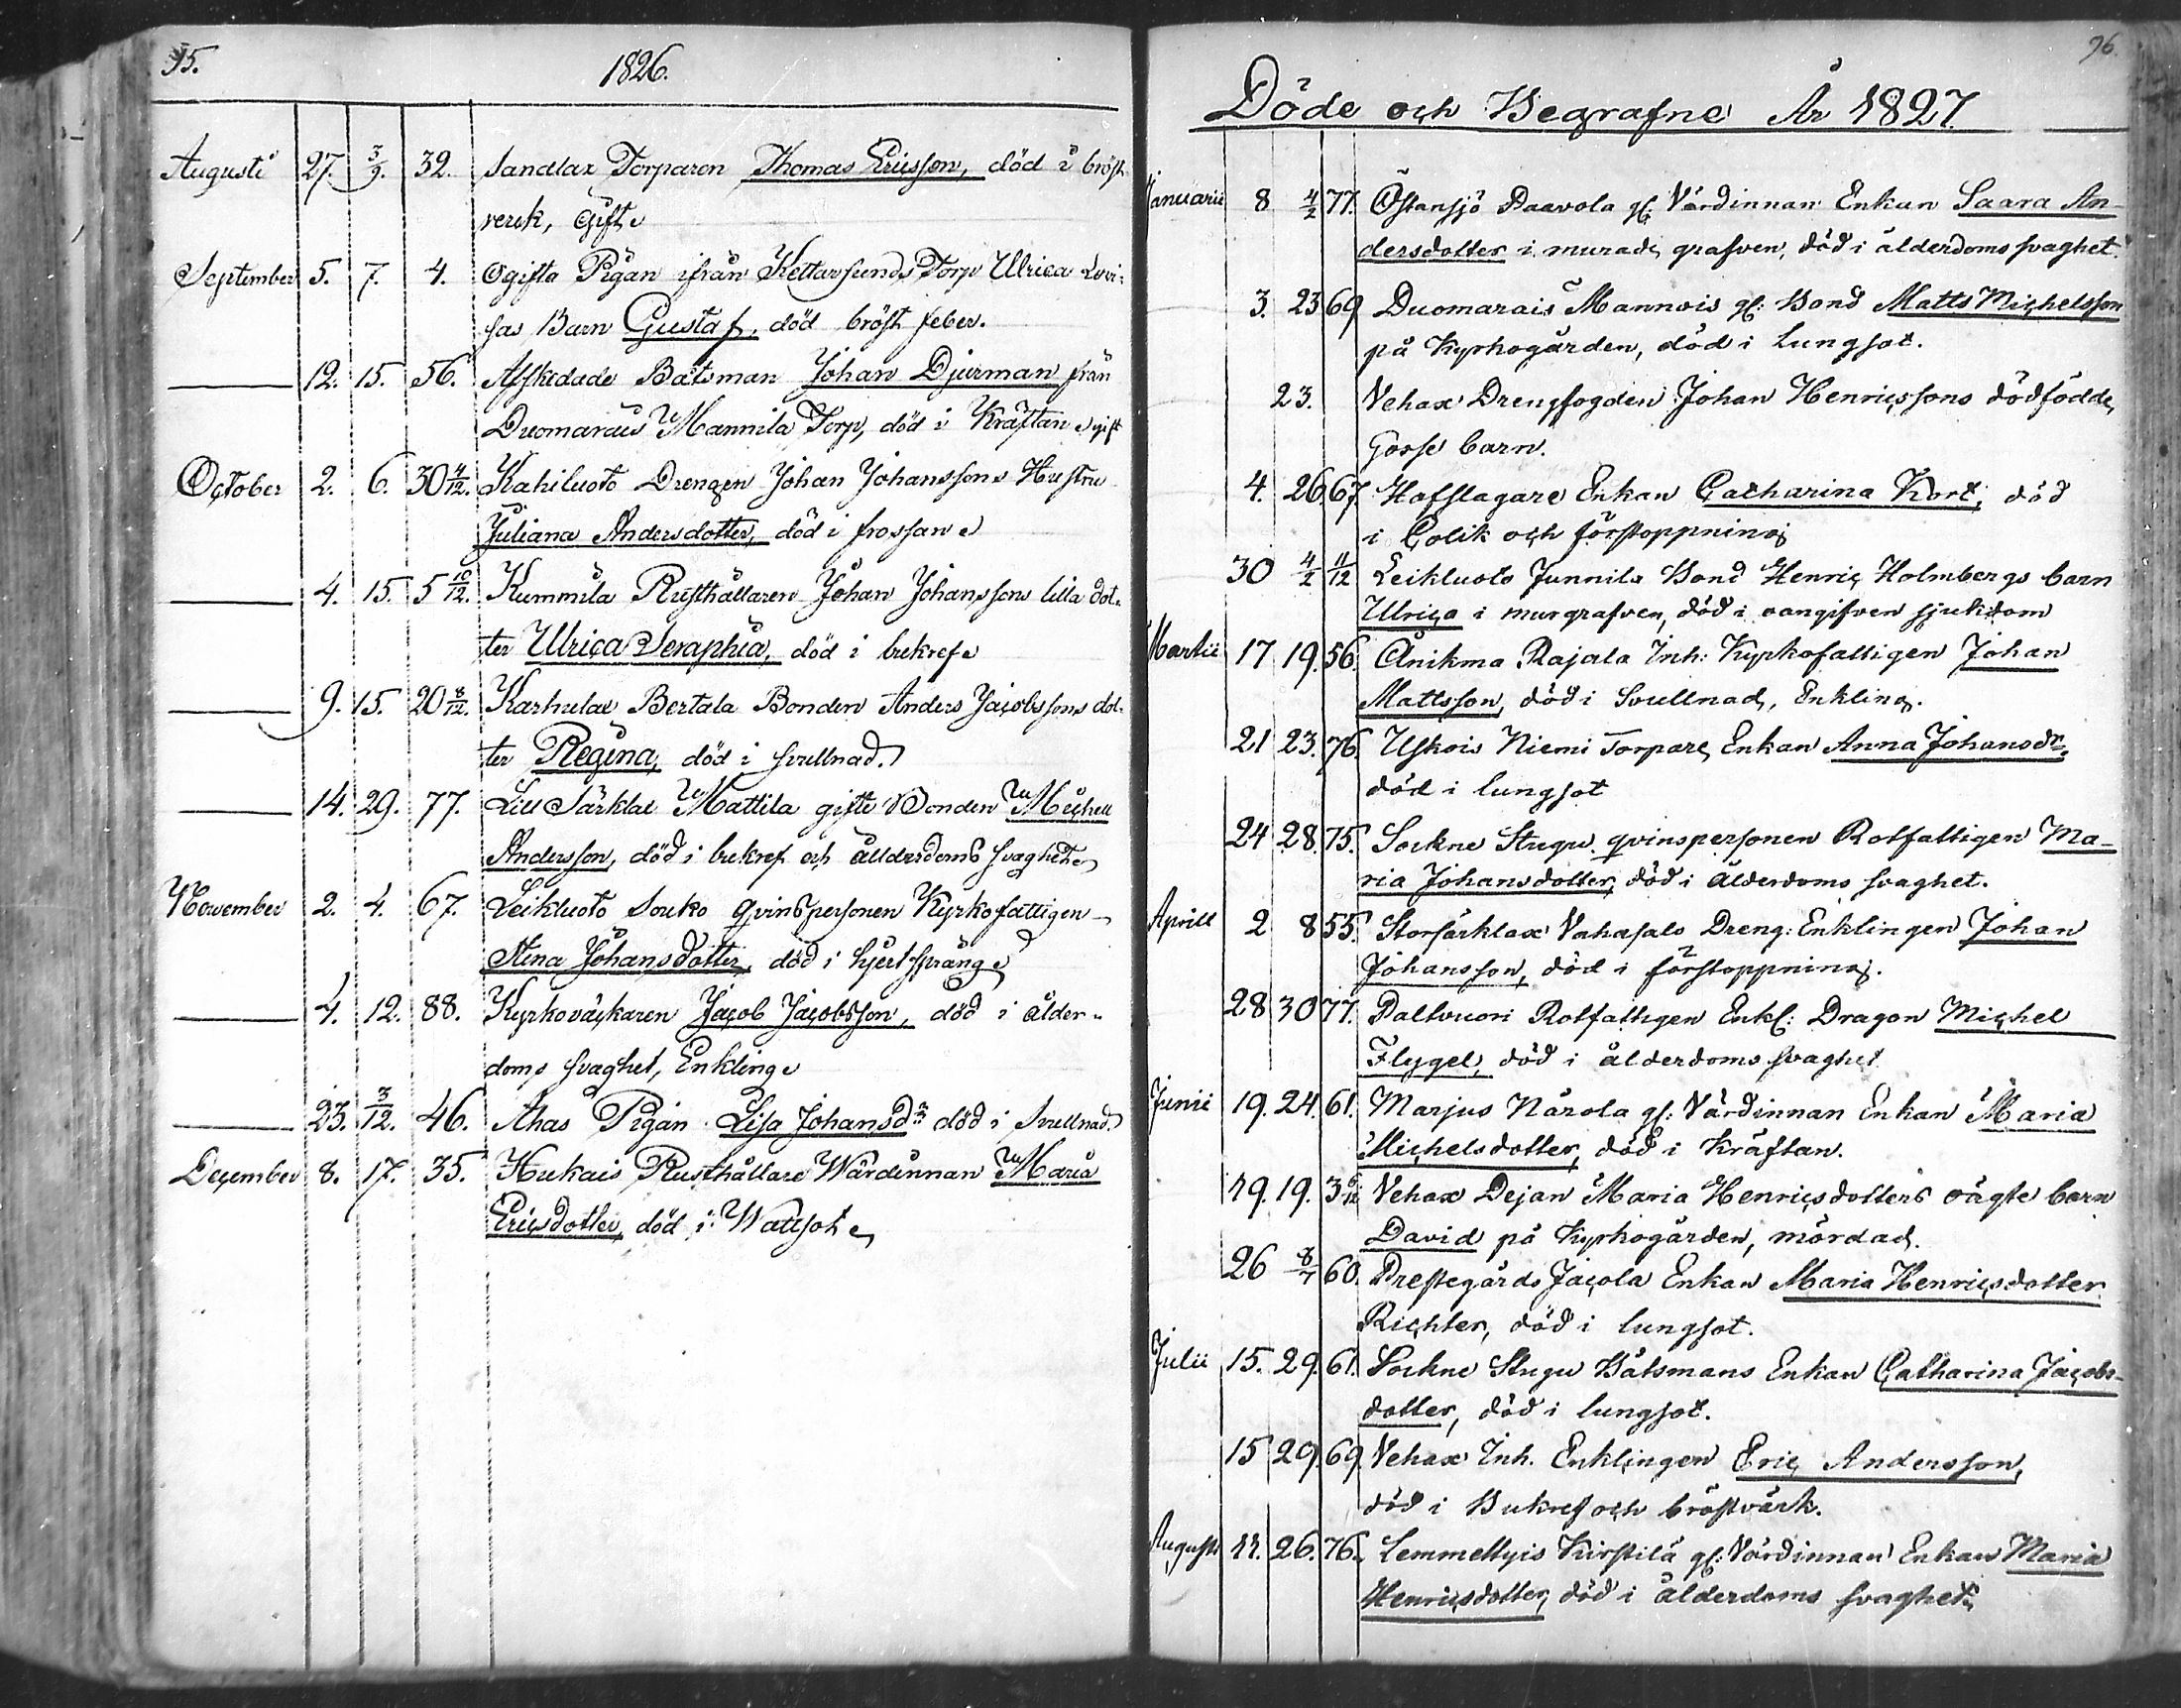 95.
1826.
Augusti 27. 3/9. 32. Sandlax Torparen Thomas Ericsson, död i bröst
verck, Gift
September 5. 7. 4. Ogifta Pigan ifrån Kettarsunds Torp Ulrica Lovi-
sas Barn Gustaf, död bröst feber.
12. 15. 56. Afskedade Båtsman Johan Djurman från
Duomarais Mannila Torp, död i Kräftan gift
October 2. 6. 30 4/12. Kahiluoto Drengen Johan Johanssons Hustru
Juliana Andersdotter, död i frossan
4. 15. 5 10/12. Kummila Rusthållaren Johan Johanssons lilla dot-
ter Ulrica Seraphia, död i bukref
9. 15. 20 8/12. Karhulax Bertala Bonden Anders Jacobssons dot-
ter Regina, död i svullnad.
14. 29. 77. Lill Särklax Mattila gifte Bonden Michell
Andersson, död i bukref och ålderdoms svaghet
November 2. 4. 67. Leikluoto Souko qvinspersonen Kyrkofattigen
Stina Johansdotter, död i hjertsprång
4. 12. 88. Kyrkoväckaren Jacob Jacobsson, död i ålder-
doms svaghet, Enkling
23. 3/12. 46. Ahas Pigan Lisa Johansdr död i Svullnad.
December 8. 17. 35. Hukais Rusthållare Wärdinnan Maria
Ericsdotter, död i Wattsot
96.
Döde och Begrafne År 1827.
Januarii 8 4/2 77. Östansjö Paavola gl: Värdinnan Enkan Saara An-
dersdotter i murade grafven, död i ålderdoms svaghet.
3. 23 69 Duomarais Mannois gl: Bond Matts Michelsson
på Kyrkogården, död i Lungsot.
23. Vehax Drengfogden Johan Henricssons dödfödde
Gosse barn.
4. 26. 67. Hofslagare Enkan Catharina Kort, död
i Colik och förstoppning
30 4/2 11/12 Leikluoto Junnila Bond Henric Holmbergs barn
Ulrica i murgrafven, död i oangifven sjukdom
Martii 17 19. 56. Änikma Rajala Inh: Kyrkofattigen Johan
Mattsson, död i Svullnad, Enkling.
21 23. 76. Uskois Niemi Torpare Enkan Anna Johansdr,
död i lungsot
24 28. 75. Sockne Stugu qvinspersonen Rotfattigen Ma-
ria Johansdotter, död i ålderdoms svaghet.
Aprill 2 8 55. Storsärklax Vahasalo Dreng: Enklingen Johan
Johansson, död i förstoppning.
28 30 77. Paltvuori Rotfattigen Enkl: Dragon Michel
Flygel, död i ålderdoms svaghet
Junii 19. 24. 61. Marjus Närola gl: Värdinnan Enkan Maria
Michelsdotter, död i Kräftan.
19. 19. Vehax Dejan Maria Henricsdotters oägte barn
David på Kyrkogården, mördad.
26 8/7 60. Prestegårds Jacola Enkan Maria Henricsdotter
Richter, död i lungsot.
Julii 15. 29. 61. Sockne Stugu Båtsmans Enkan Catharina Jacobs-
dotter, död i lungsot.
15 29. 69. Vehax Inh. Enklingen Eric Andersson,
död i Bukref och bröstvärk.
Augusti 11. 26. 76. Lemmettyis Kirstilä gl: Värdinnan Enkan Maria
Henricsdotter, död i ålderdoms svaghet